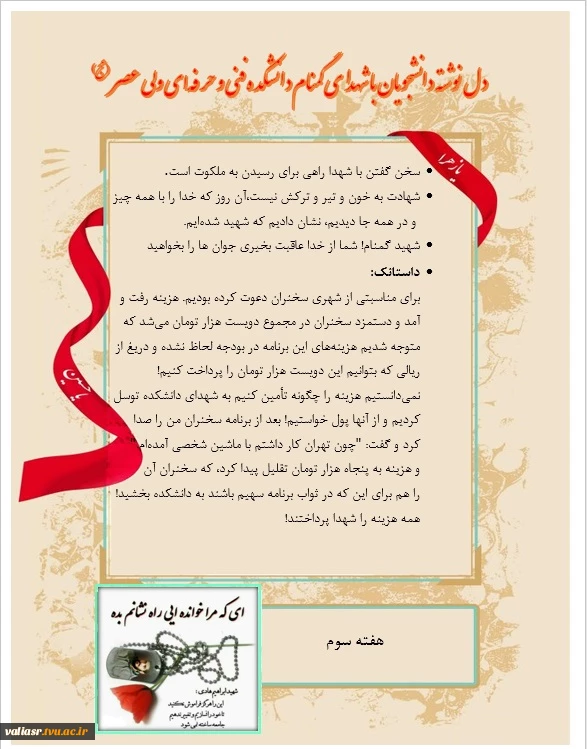 دل نوشته دانشجویان با شهدای گمنام دانشکده فنی و حرفه‌ای ولی عصر (عج)
یازهرا
• سخن گفتن با شهدا راهی برای رسیدن به ملکوت است.
• شهادت به خون و تیر و ترکش نیست،آن روز که خدا را با همه چیز
و در همه جا دیدیم، نشان دادیم که شهید شده‌ایم.
• شهید گمنام! شما از خدا عاقبت بخیری جوان ها را بخواهید
• داستانک:
برای مناسبتی از شهری سخنران دعوت کرده بودیم. هزینه رفت و
آمد و دستمزد سخنران در مجموع دویست هزار تومان می‌شد که
متوجه شدیم هزینه‌های این برنامه در بودجه لحاظ نشده و دریغ از
ریالی که بتوانیم این دویست هزار تومان را پرداخت کنیم!
نمی‌دانستیم هزینه را چگونه تأمین کنیم به شهدای دانشکده توسل
کردیم و از آنها پول خواستیم! بعد از برنامه سخنران من را صدا
کرد و گفت: "چون تهران کار داشتم با ماشین شخصی آمده‌ام."
و هزینه به پنجاه هزار تومان تقلیل پیدا کرد، که سخنران آن
را هم برای این که در ثواب برنامه سهیم باشند به دانشکده بخشید!
همه هزینه را شهدا پرداختند!
یا حسین
ای که مرا خوانده ایی راه نشانم بده
شهید ابراهیم هادی:
این را هرگز فراموش نکنید
تا خود را نسازیم و تغییر ندهیم
جامعه ساخته نمی‌شود
هفته سوم
valiasr.tvu.ac.ir